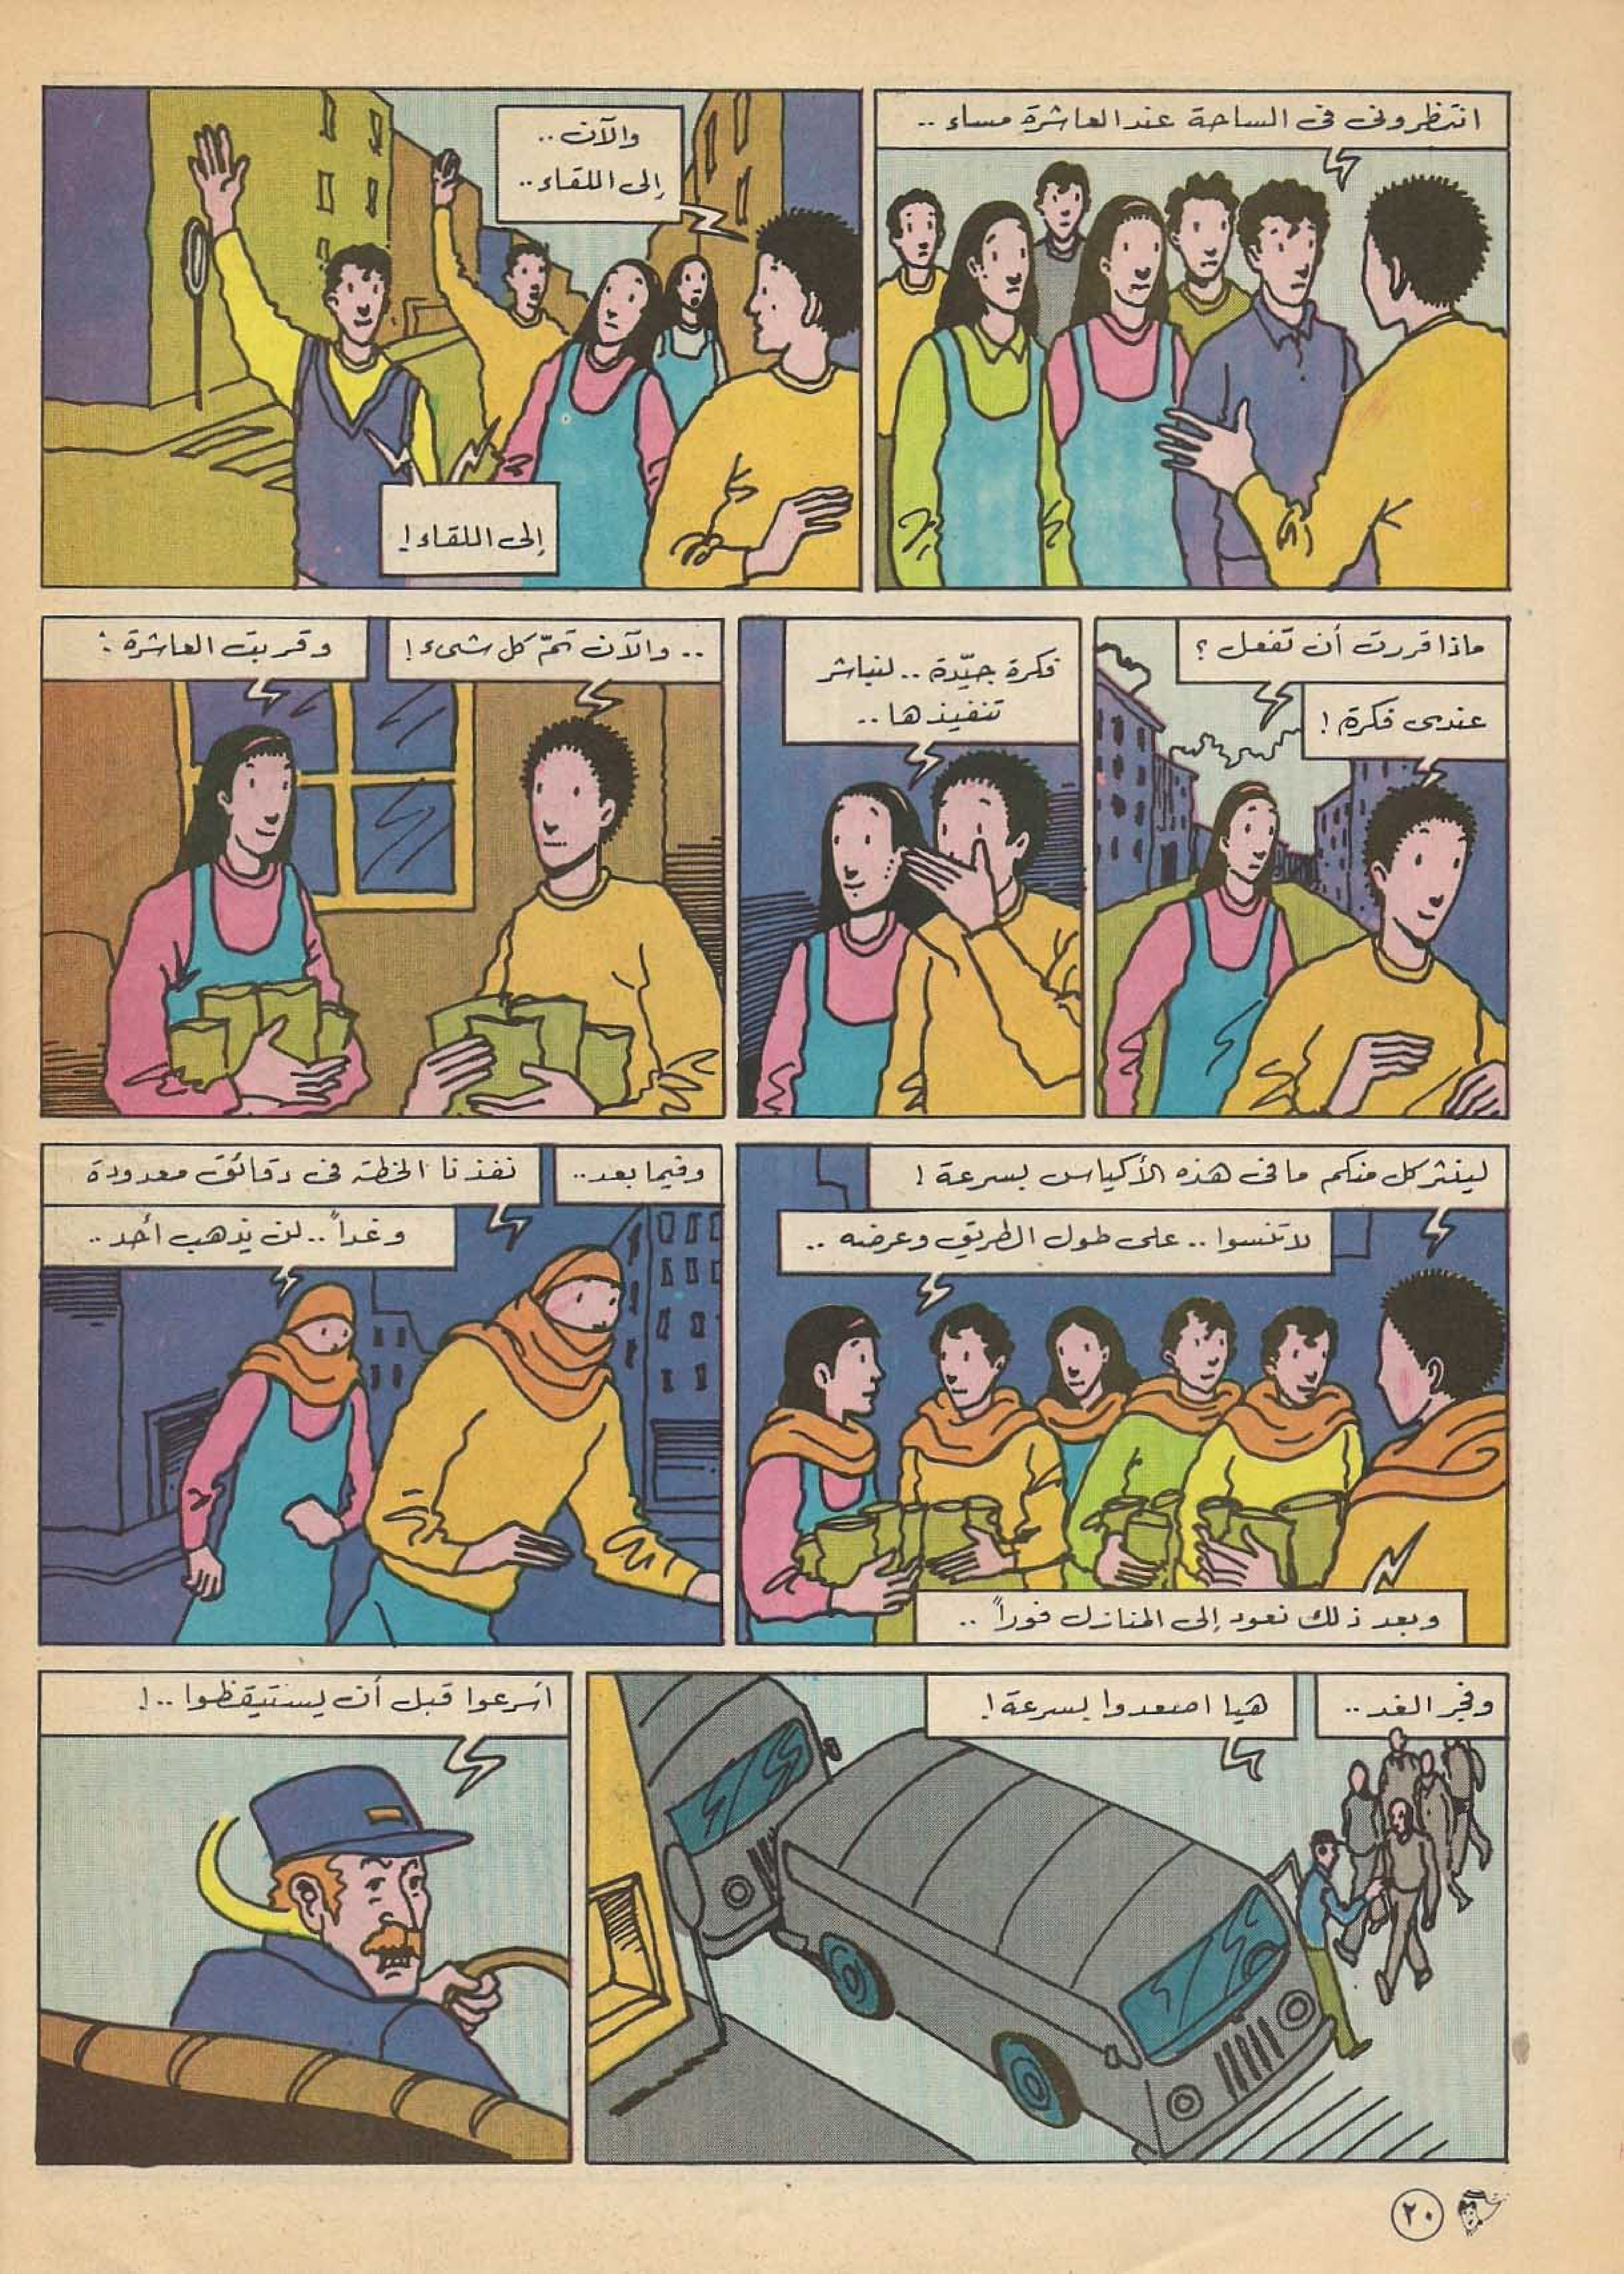 انتظرونى فى الساحة عند العاشرة مساء ..
والآن ..
إلى اللقاء ..
إلى اللقاء !
ماذا قررت أن تفعل ؟
عندى فكرة !
فكرة جيّدة .. لنباشر
تنفيذها ..
.. والآن تمّ كل شىء !
وقربت العاشرة :
لينثر كل منكم ما فى هذه الأكياس بسرعة !
لا تنسوا .. على طول الطريق وعرضه ..
وبعد ذلك نعود إلى المنازل فوراً ..
وفيما بعد ..
نفذنا الخطة فى دقائق معدودة
وغداً .. لن يذهب أحد ..
وفجر الغد ..
هيا اصعدوا بسرعة !
أسرعوا قبل أن يستيقظوا .. !
٢٠